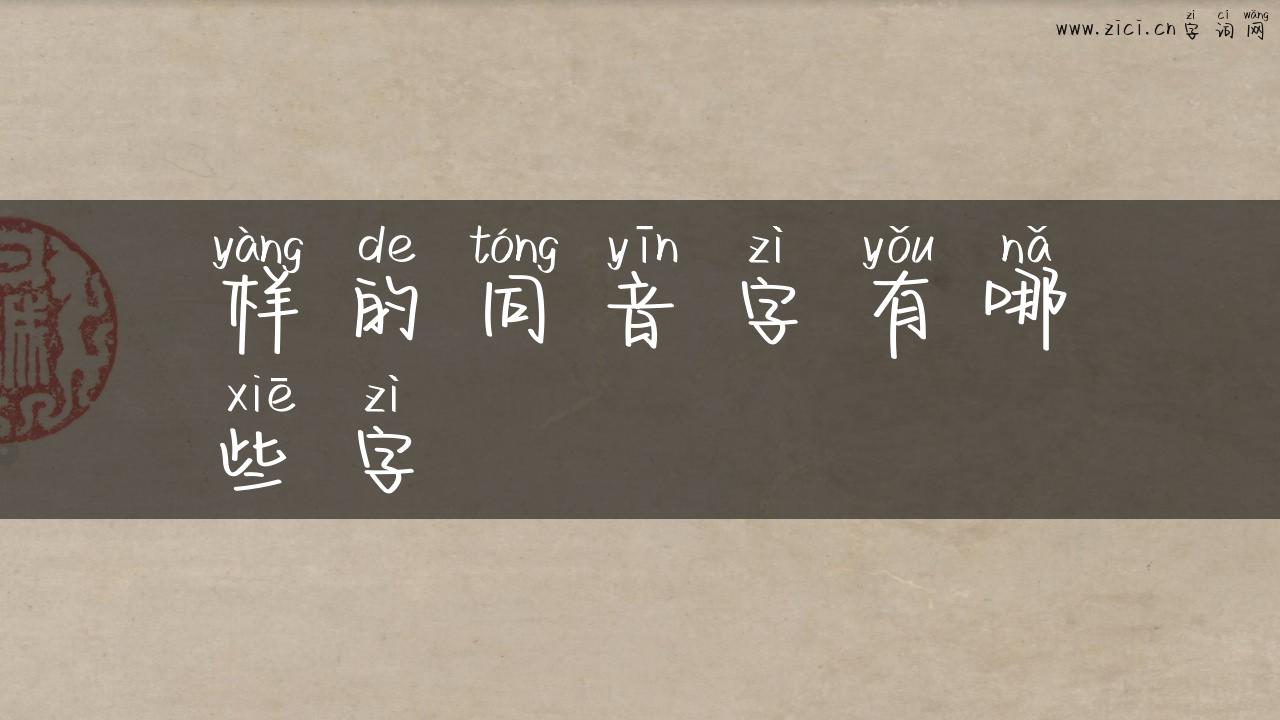 zì cí wǎng
www.zici.cn 字 词 网
yàng de tóng yīn zì yǒu nǎ
样 的 同 音 字 有 哪
xiē zì
些 字